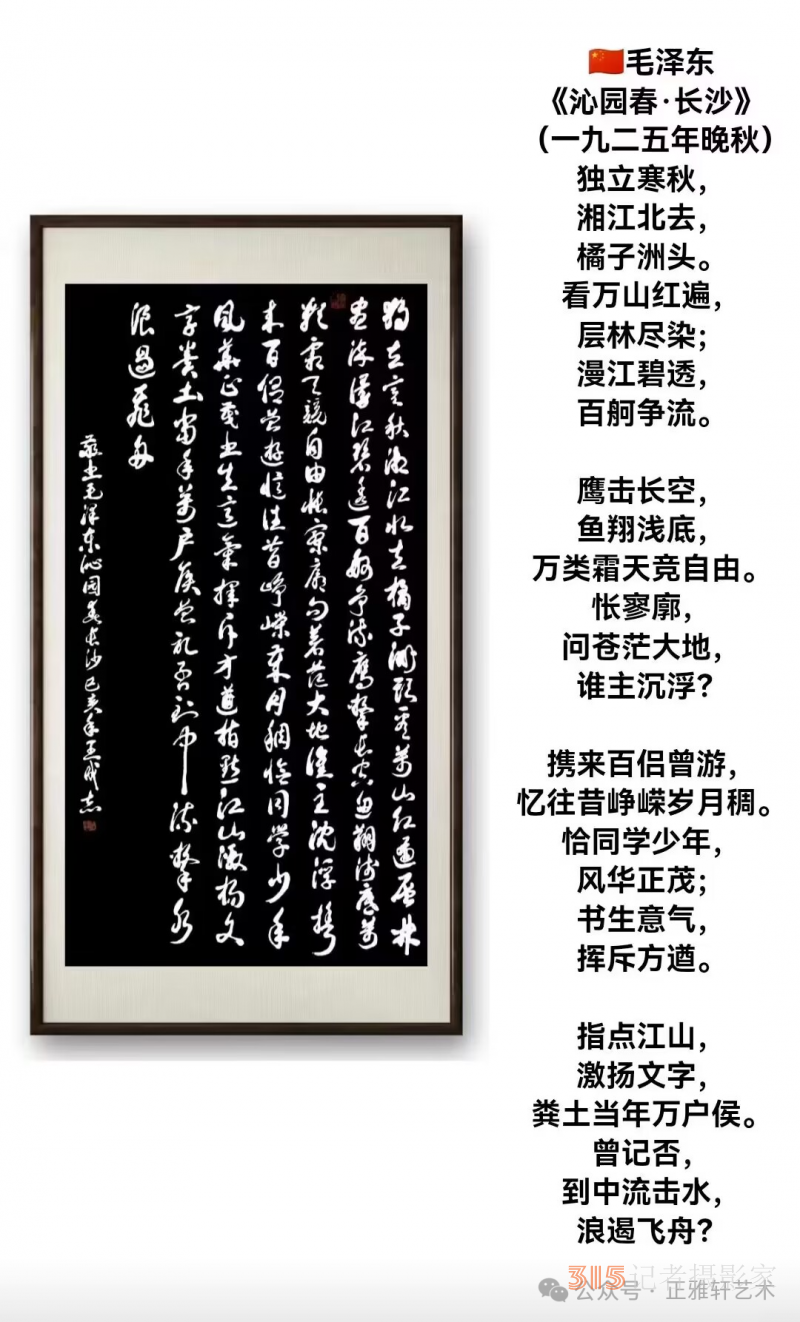 🇨🇳毛泽东
《沁园春·长沙》
（一九二五年晚秋）
独立寒秋，
湘江北去，
橘子洲头。
看万山红遍，
层林尽染；
漫江碧透，
百舸争流。
鹰击长空，
鱼翔浅底，
万类霜天竞自由。
怅寥廓，
问苍茫大地，
谁主沉浮？
携来百侣曾游，
忆往昔峥嵘岁月稠。
恰同学少年，
风华正茂；
书生意气，
挥斥方遒。
指点江山，
激扬文字，
粪土当年万户侯。
曾记否，
到中流击水，
浪遏飞舟？
独立寒秋湘江北去橘子洲头看万山红遍层林
尽染漫江碧透百舸争流鹰击长空鱼翔浅底万
类霜天竞自由怅寥廓问苍茫大地谁主沉浮携
来百侣曾游忆往昔峥嵘岁月稠恰同学少年
风华正茂书生意气挥斥方遒指点江山激扬文
字粪土当年万户侯曾记否到中流击水
浪遏飞舟
敬书毛泽东沁园春长沙己亥年王成志
315记者摄影家
公众号·正雅轩艺术